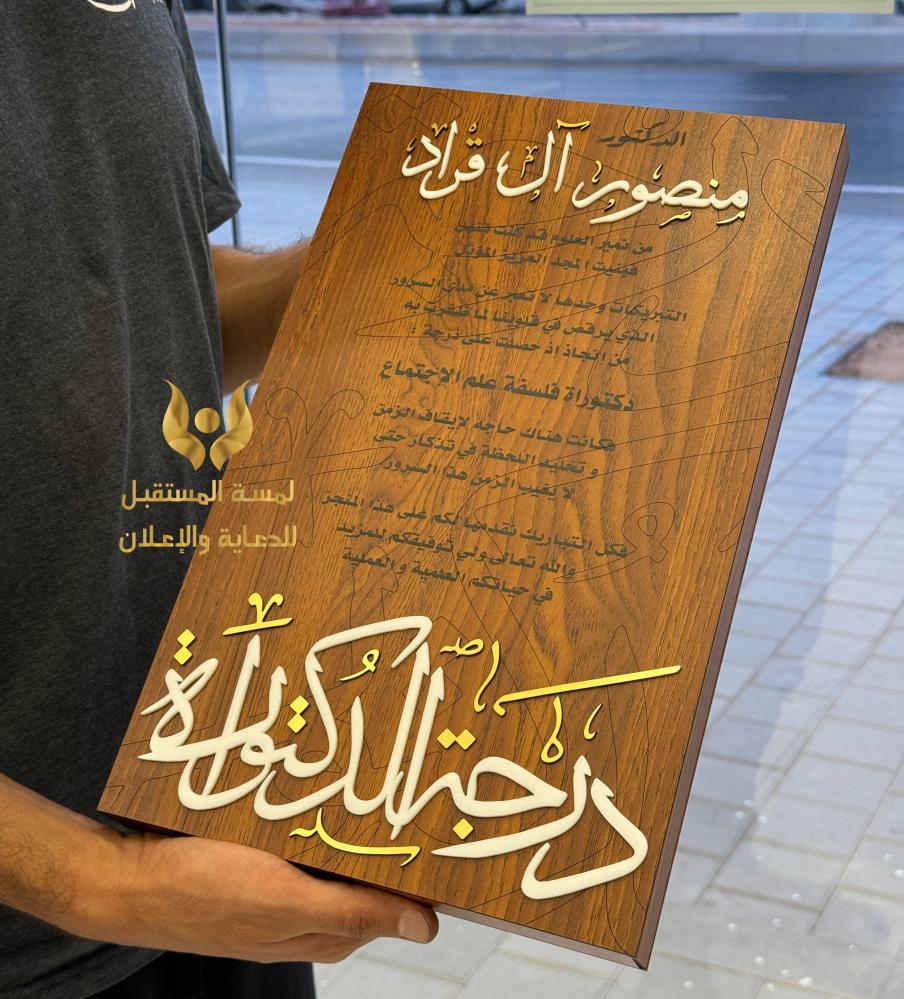 الدكتور
منصور آل قراد
من نمير العلوم قد كنت تنهل
فبنيت المجد العزيز المؤثل
التبريكات وحدها لا تعبر عن مدى السرور
الذي يرقص في قلوبنا لما ظفرت به
من انجاز اذ حصلت على درجة :
دكتوراة فلسفة علم الاجتماع
فكانت هناك حاجه لايقاف الزمن
و تخليد اللحظة في تذكار حتى
لا يغيب الزمن هذا السرور
فكل التباريك نقدمها لكم على هذا المنجز
والله تعالى ولي توفيقكم للمزيد
في حياتكم العلمية والعملية
درجة الدكتوراة
لمسة المستقبل
للدعاية والإعلان